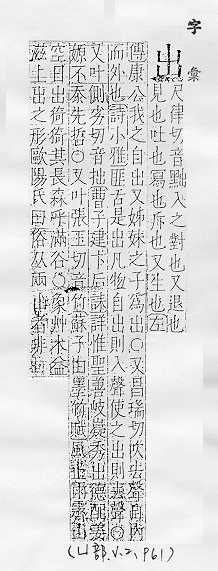 字彙
出
尺律切音黜入之對也又退也
見也吐也寫也斥也又生也左
傳康公我之自出又姊妹之子爲出○又昌瑞切吹去聲自內
而外也詩小雅匪舌是出凡物自出則入聲使之出則去聲○
又叶側劣切音拙曹子建卞后誄詳惟聖善岐嶷秀出德配姜
嫄不忝先哲○又叶張玉切音竹蘇子由墨竹賦風龍雨霽山
空日出猗猗其長森乎滿谷○象艸木益
滋上出之形歐陽氏曰俗从兩山者非
(凵部.V.2, 961)